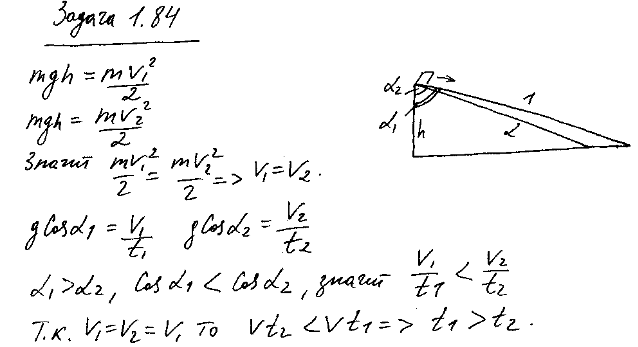 Задача 1.84
mgh = mV₁²/2
mgh = mV₂²/2
Значит mV₁²/2 = mV₂²/2 => V₁ = V₂.
gCosα1 = V₁/t₁ gCosα2 = V₂/t2
α₁ > α₂, Cosα1 < Cosα2, значит V₁/t1 < V₂/t₂
Т.к. V₁ = V₂ = V, то Vt₂ < Vt₁ => t₁ > t₂.
α₂
α₁
h
1
2